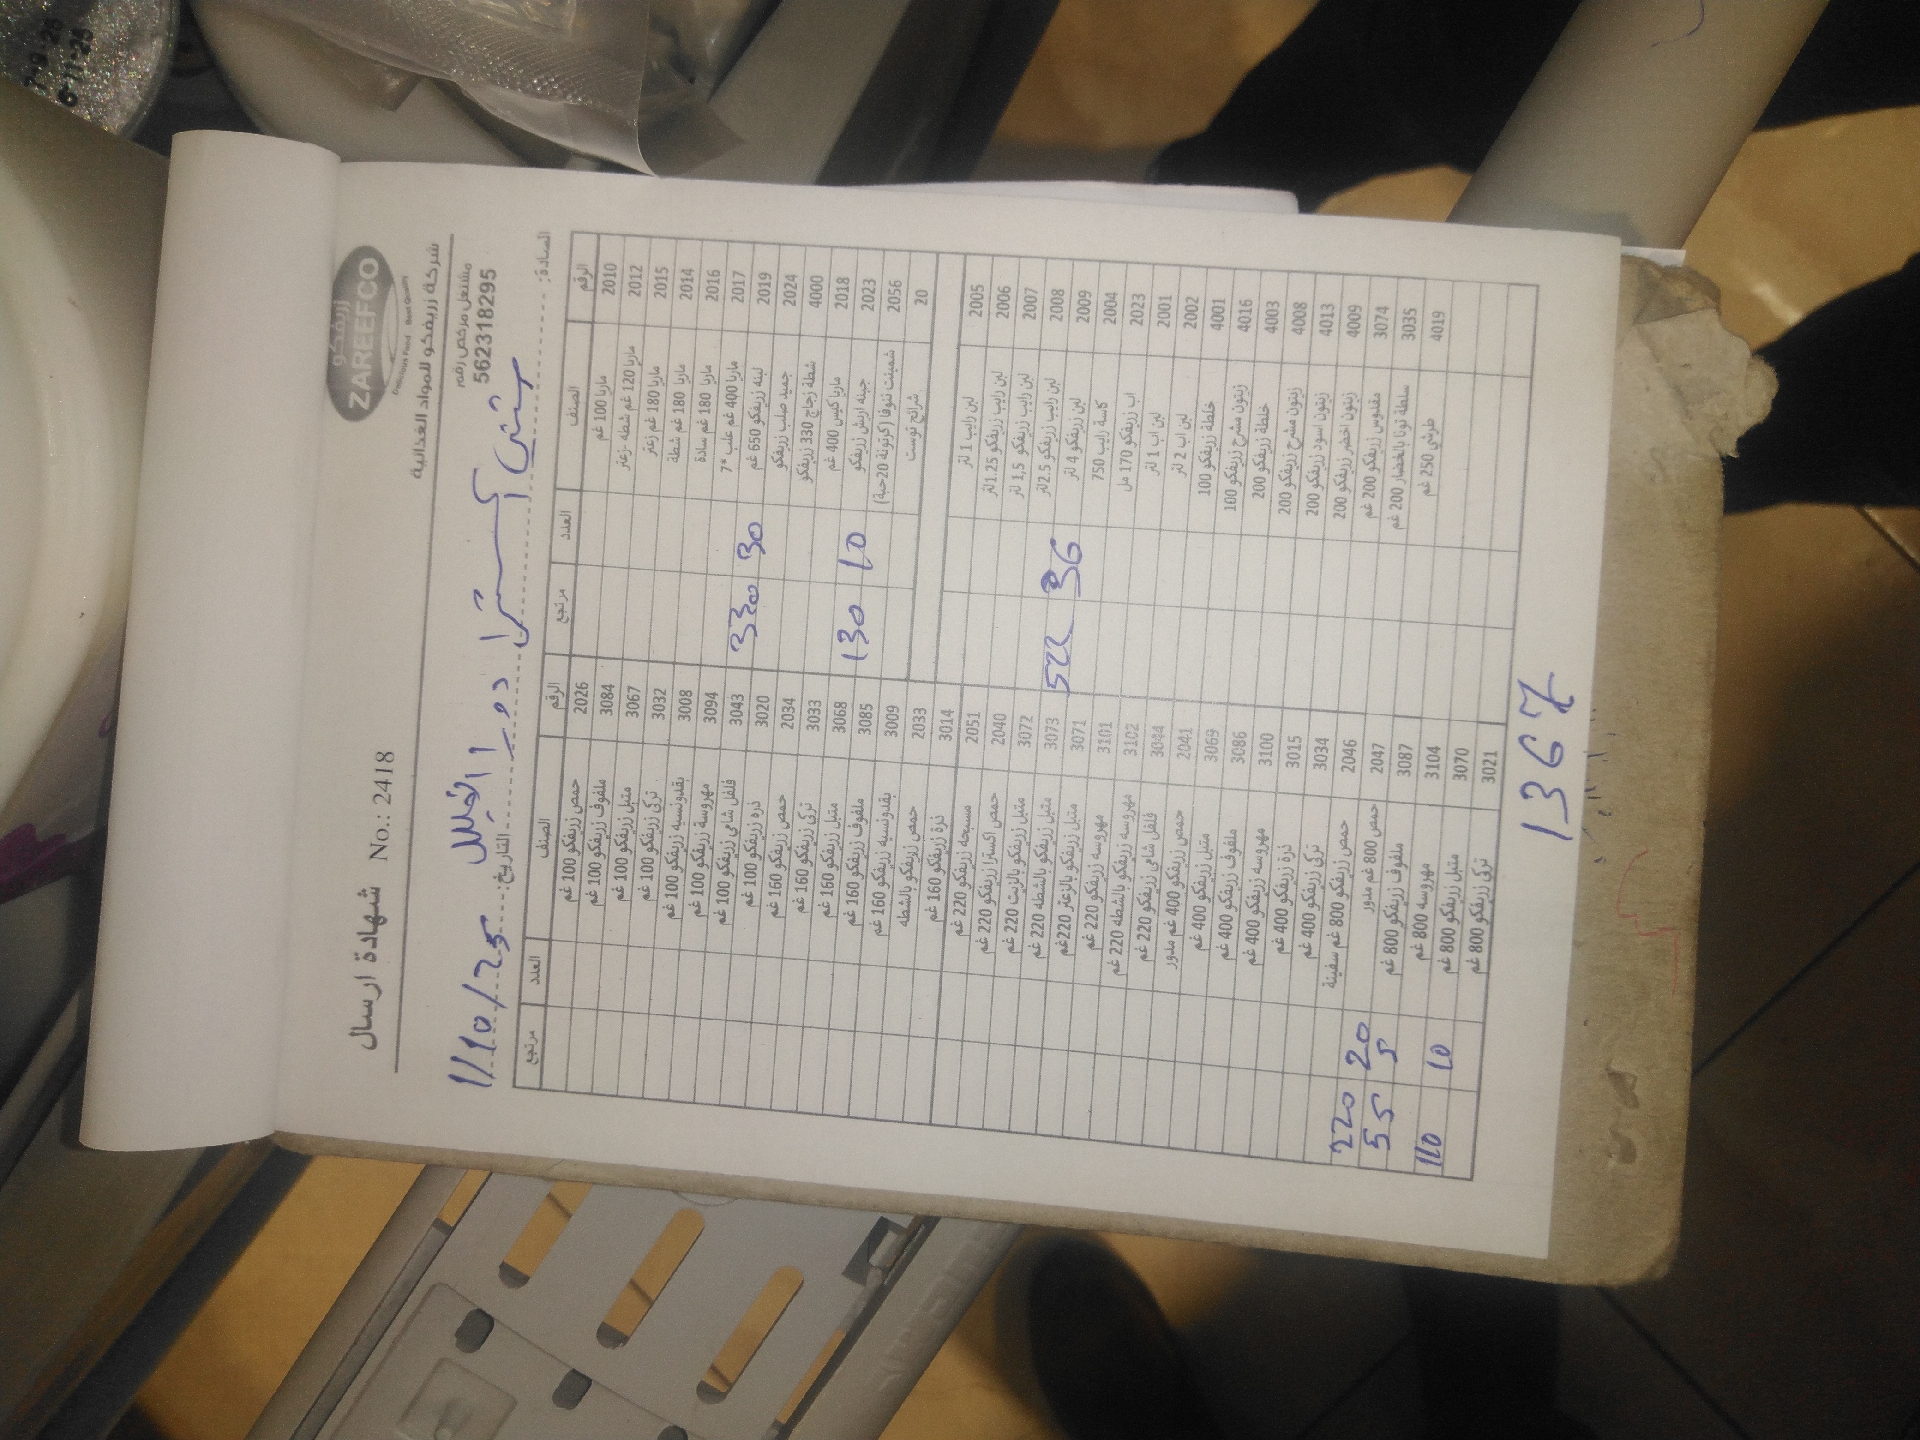 زريفكو
ZAREEFCO
Delicious Food Best Quality
شركة زريفكو للمواد الغذائية
مشتغل مرخص رقم
562318295
شهادة ارسال No.: 2418
السادة:
التاريخ: 1/10/25
الرقم الصنف العدد مرتجع الرقم الصنف العدد مرتجع
2010 ماريا 100 غم 2026 حمص زريفكو 100 غم
2012 ماريا 120 غم شطة -زعتر 3084 ملفوف زريفكو 100 غم
2015 ماريا 180 غم زعتر 3067 متبل زريفكو 100 غم
2014 ماريا 180 غم شطة 3032 تركي زريفكو 100 غم
2016 ماريا 180 غم سادة 3008 بقدونسيه زريفكو 100 غم
2017 ماريا 400 غم علب *7 3094 مهروسة زريفكو 100 غم
2019 لبنه زريفكو 650 غم 30 330 3043 فلفل شامي زريفكو 100 غم
2024 جميد صلب زريفكو 3020 ذرة زريفكو 100 غم
4000 شطة زجاج 330 زريفكو 2034 حمص زريفكو 160 غم
2018 ماريا كيس 400 غم 3033 تركي زريفكو 160 غم
2023 جبنه اريش زريفكو 10 130 3068 متبل زريفكو 160 غم
2056 شمينت تنوفا (كرتونة 20حبة) 3085 ملفوف زريفكو 160 غم
20 شرائح توست 3009 بقدونسيه زريفكو 160 غم
2033 حمص زريفكو بالشطه
3014 ذرة زريفكو 160 غم
2005 لبن رايب 1 لتر 2051 مسبحه زريفكو 220 غم
2006 لبن رايب زريفكو 1.25لتر 2040 حمص اكسترا زريفكو 220 غم
2007 لبن رايب زريفكو 1,5 لتر 3072 متبل زريفكو بالزيت 220 غم
2008 لبن رايب زريفكو 2.5لتر 3073 متبل زريفكو بالشطه 220 غم
2009 لبن زريفكو 4 لتر 36 522 3071 متبل زريفكو بالزعتر 220غم
2004 كاسة رايب 750 3101 مهروسه زريفكو 220 غم
2023 اب زريفكو 170 مل 3102 مهروسه زريفكو بالشطه 220 غم
2001 لبن اب 1 لتر 3044 فلفل شامي زريفكو 220 غم
2002 لبن اب 2 لتر 2041 حمص زريفكو 400 غم مدور
4001 خلطة زريفكو 100 3069 متبل زريفكو 400 غم
4016 زيتون مشرح زريفكو 100 3086 ملفوف زريفكو 400 غم
4003 خلطة زريفكو 200 3100 مهروسه زريفكو 400 غم
4008 زيتون مشرح زريفكو 200 3015 ذرة زريفكو 400 غم
4013 زيتون اسود زريفكو 200 3034 تركي زريفكو 400 غم
4009 زيتون اخضر زريفكو 200 2046 حمص زريفكو 800 غم سفينة 20 220
3074 مقدوس زريفكو 200 غم 2047 حمص 800 غم مدور 5 55
3035 سلطة تونا بالخضار 200 غم 3087 ملفوف زريفكو 800 غم
4019 طرشي 250 غم 3104 مهروسه 800 غم 10 110
3070 متبل زريفكو 800 غم
3021 تركي زريفكو 800 غم
1367